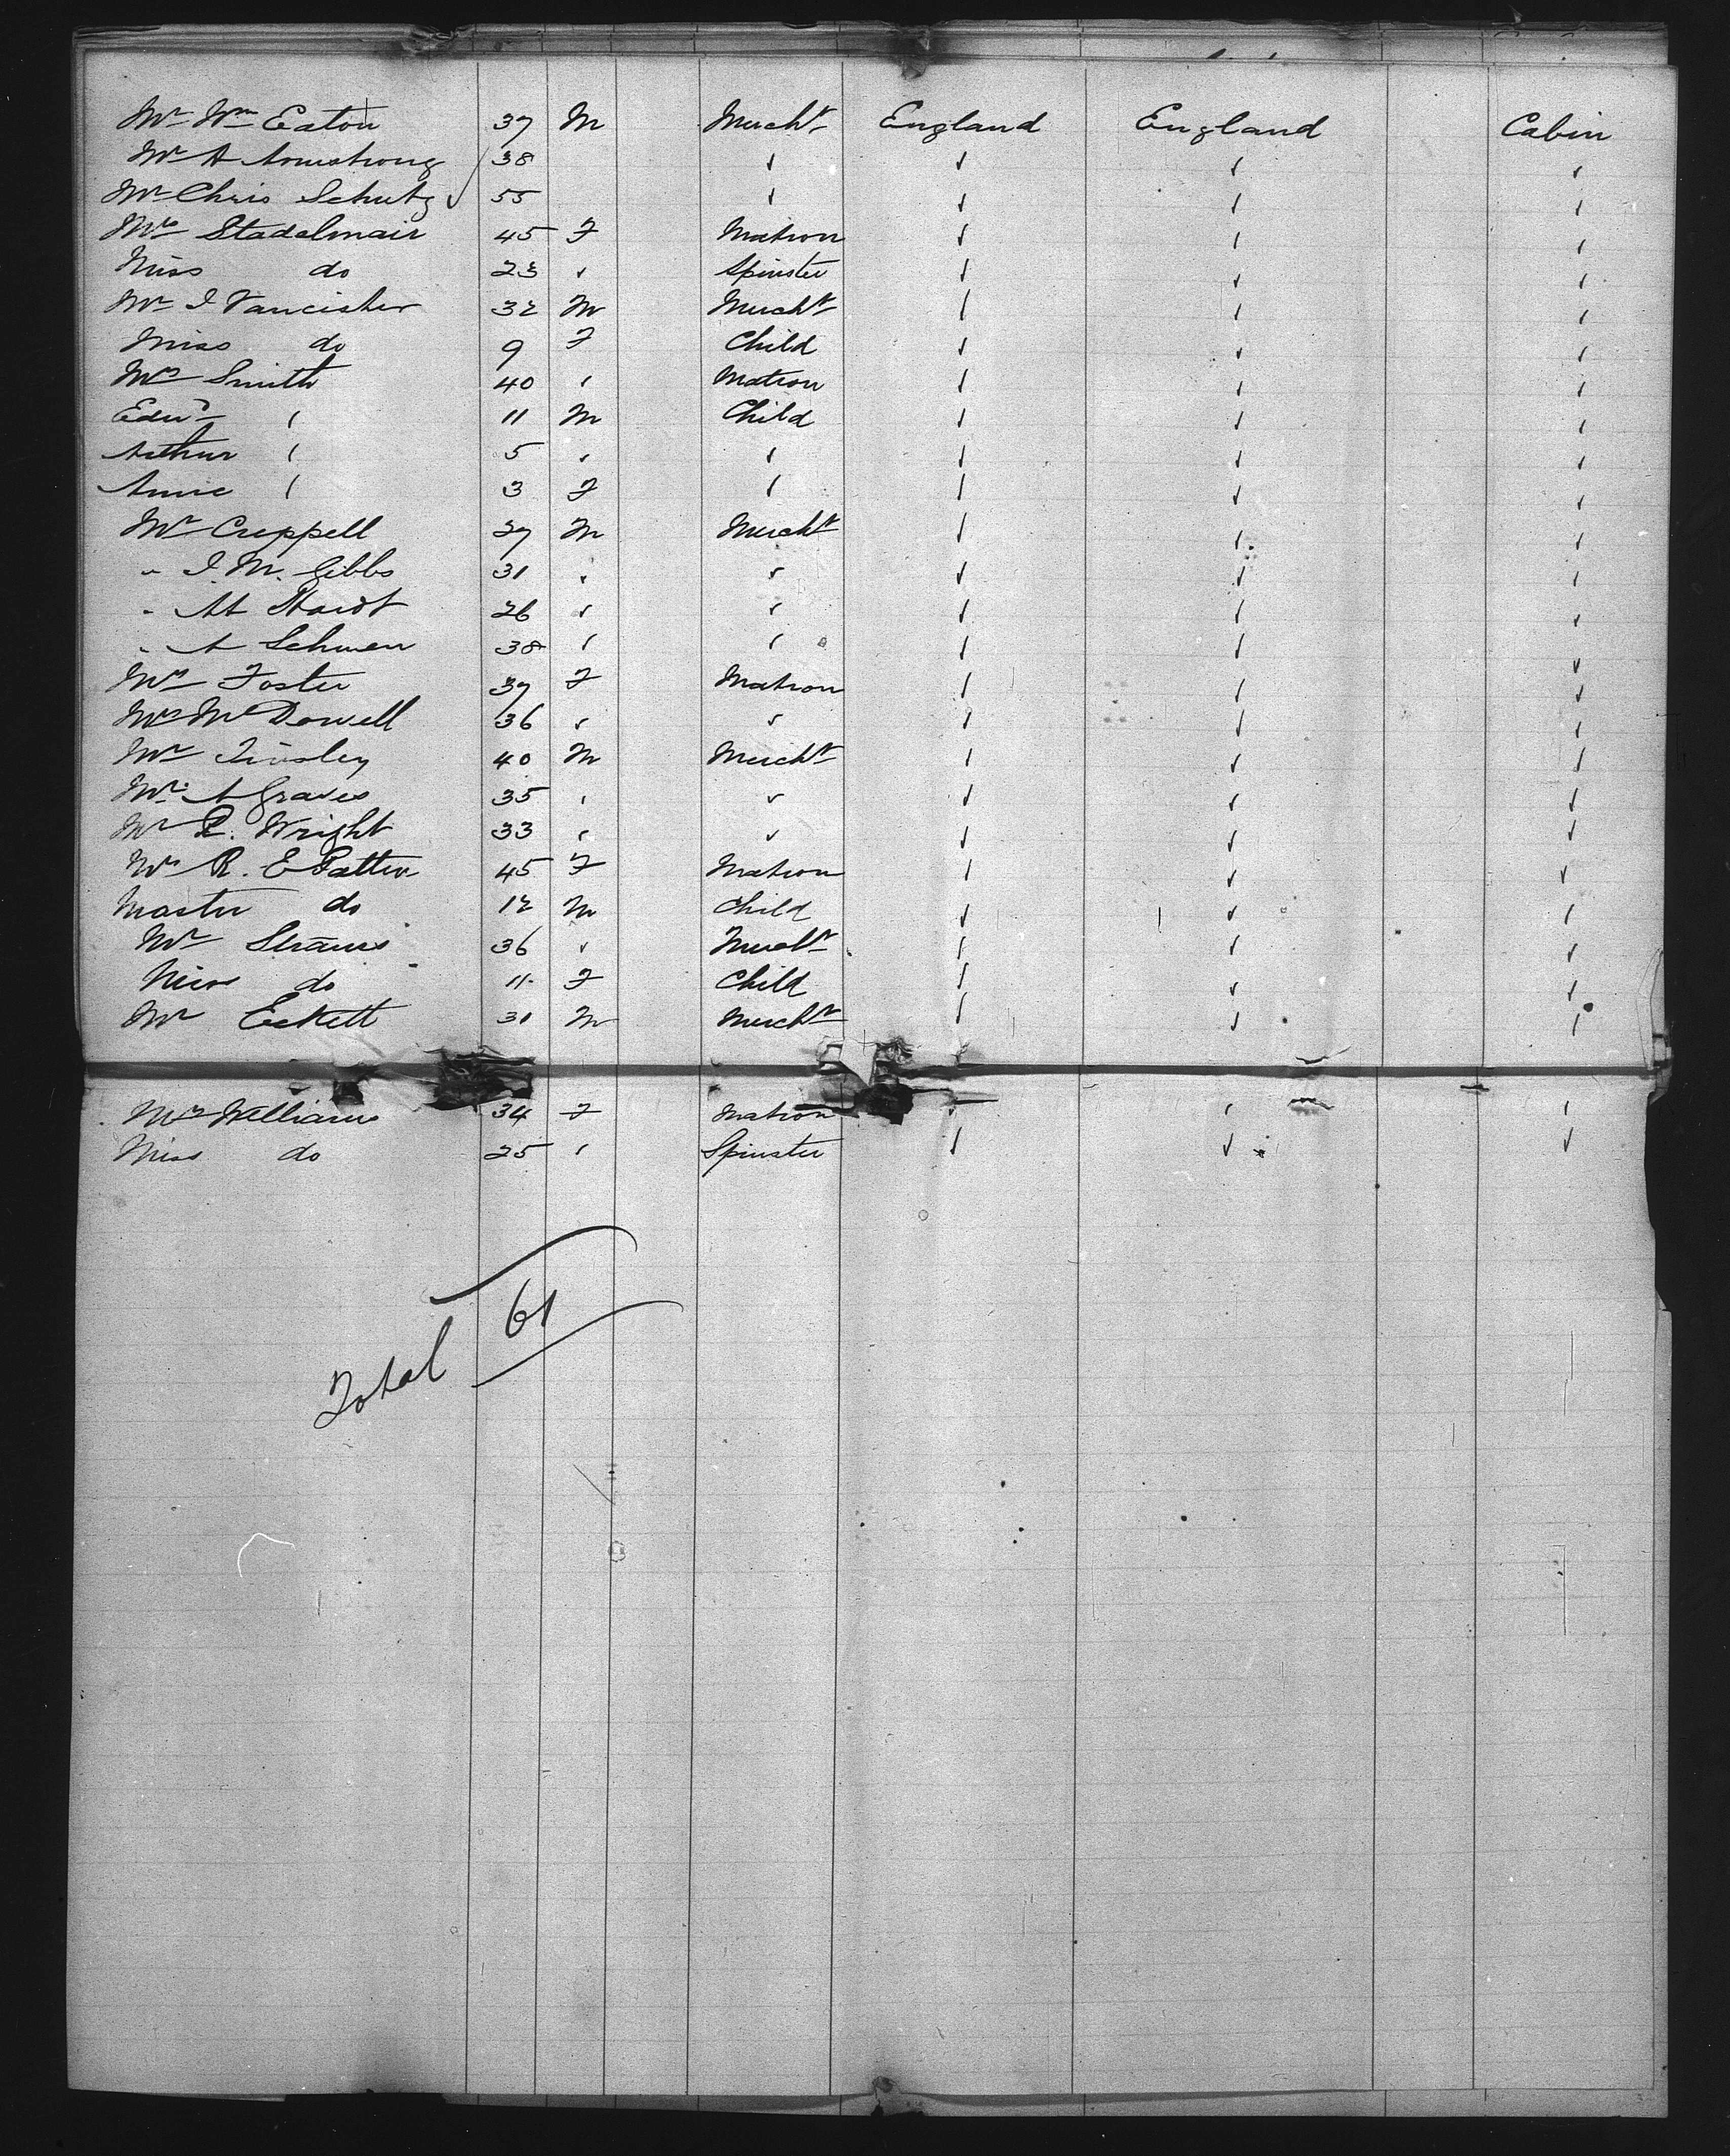 Mr Wm Eaton 37 M Mercht England England Cabin
Mr A Armstrong 38 " " " "
Mr Chris Schutz 55 " " " "
Mrs Stadelmair 45 F Matron " " "
Miss do 23 " Spinster " " "
Mr I Vancisher 32 M Mercht " " "
Miss do 9 F Child " " "
Mrs Smith 40 " Matron " " "
Edwd " 11 M Child " " "
Arthur " 5 " " " " "
Annie " 3 F " " " "
Mr Creppell 27 M Mercht " " "
" I. M. Gibbs 31 " " " " "
" 26 " " " " "
" A Schwen 38 " " " " "
Mrs Foster 37 F Matron " " "
Mrs McDowell 36 " " " " "
Mr Tinsley 40 M Mercht " " "
Mr A Graves 35 " " " " "
Mr R. Wright 33 " " " " "
Mrs R. E Patter 45 F Matron " " "
Master do 12 M Child " " "
Mr Straus 36 " Mercht " " "
Miss do 11 F Child " " "
Mr Eckett 31 M Mercht " " "
Mrs Williams 34 F Matron " " "
Miss do 25 " Spinster " " "
Total 61